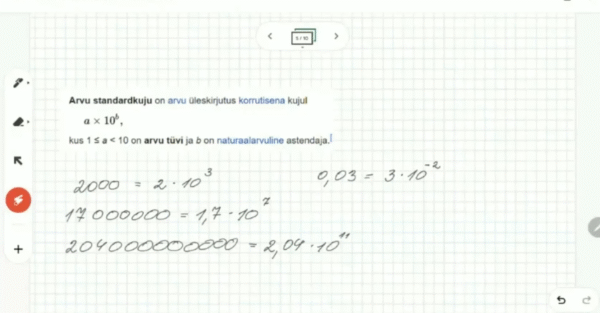 5 / 10
Arvu standardkuju on arvu üleskirjutus korrutisena kujul
a × 10ᵇ,
kus 1 ≤ a < 10 on arvu tüvi ja b on naturaalarvuline astendaja.
2000 = 2 · 10³
0,03 = 3 · 10⁻²
17000000 = 1,7 · 10⁷
204000000000 = 2,04 · 10¹¹